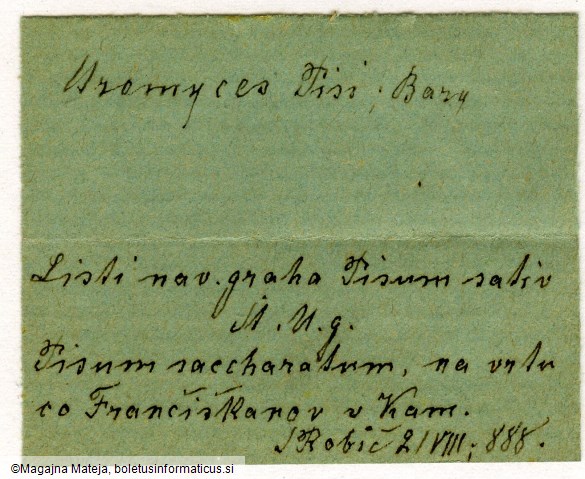 Uromyces Pisi; Bary
Listi nav. graha Pisum sativ
M. U. g.
Pisum saccharatum, na vrtu
co Frančiškanov v Kam.
SRobič 2/VIII; 888.
©Magajna Mateja, boletusinformaticus.si